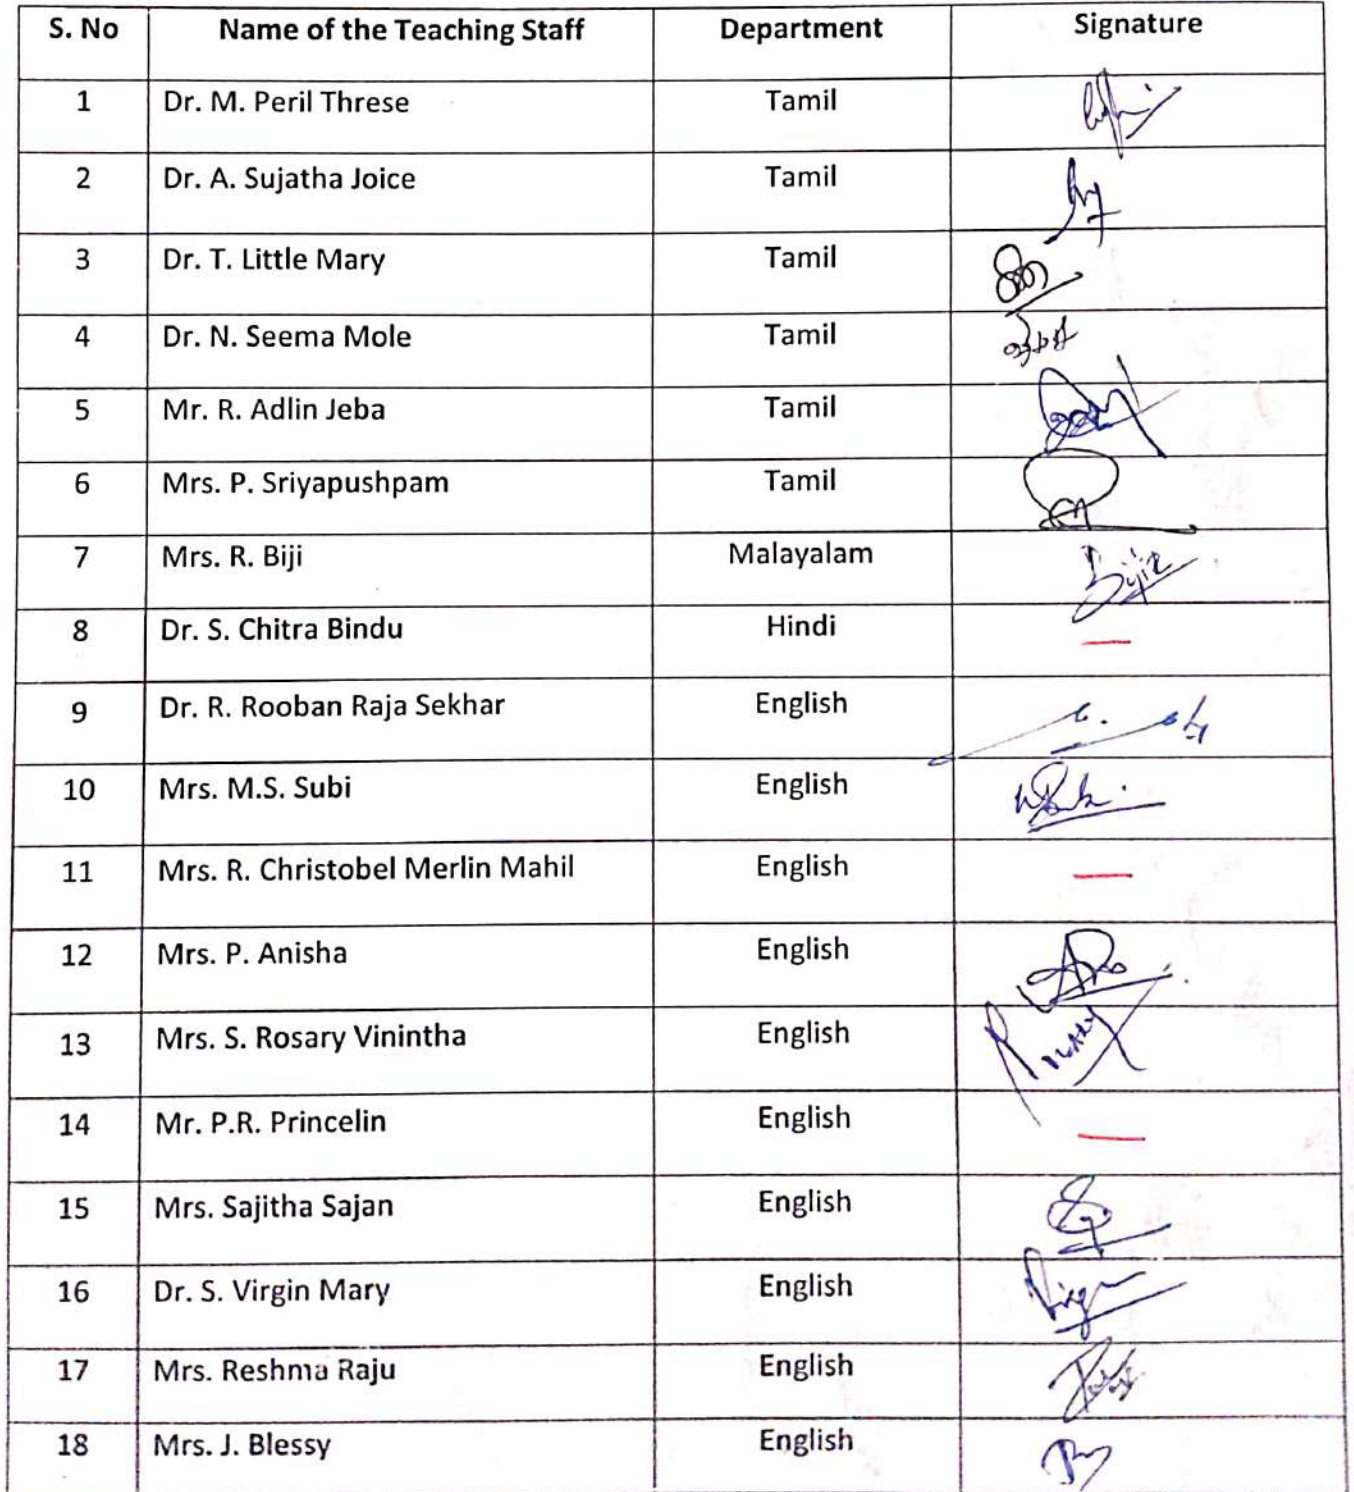 S. No Name of the Teaching Staff Department Signature
1 Dr. M. Peril Threse Tamil
2 Dr. A. Sujatha Joice Tamil
3 Dr. T. Little Mary Tamil
4 Dr. N. Seema Mole Tamil
5 Mr. R. Adlin Jeba Tamil
6 Mrs. P. Sriyapushpam Tamil
7 Mrs. R. Biji Malayalam
8 Dr. S. Chitra Bindu Hindi —
9 Dr. R. Rooban Raja Sekhar English
10 Mrs. M.S. Subi English
11 Mrs. R. Christobel Merlin Mahil English —
12 Mrs. P. Anisha English
13 Mrs. S. Rosary Vinintha English
14 Mr. P.R. Princelin English —
15 Mrs. Sajitha Sajan English
16 Dr. S. Virgin Mary English
17 Mrs. Reshma Raju English
18 Mrs. J. Blessy English